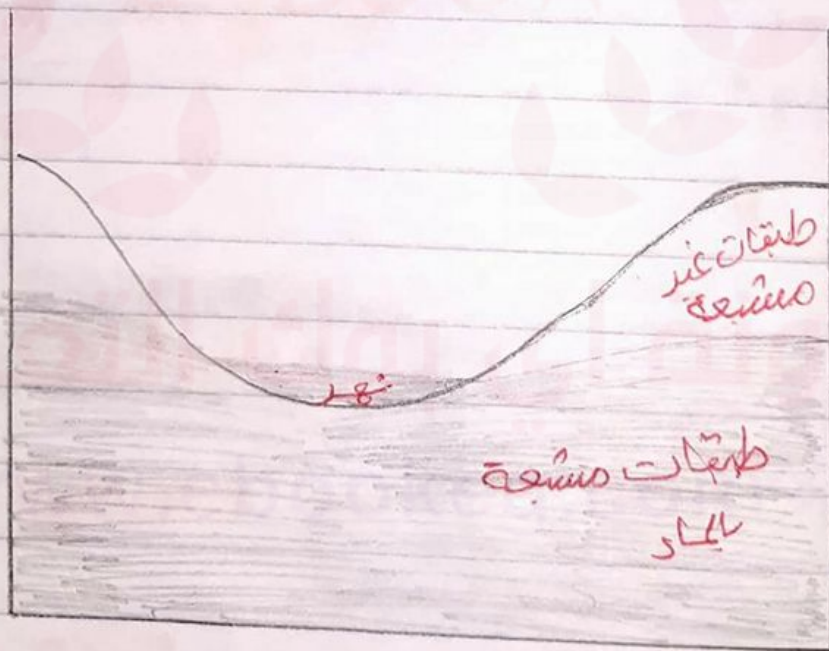 طبقات غير
مشبعة
نهر
طبقات مشبعة
بالماء